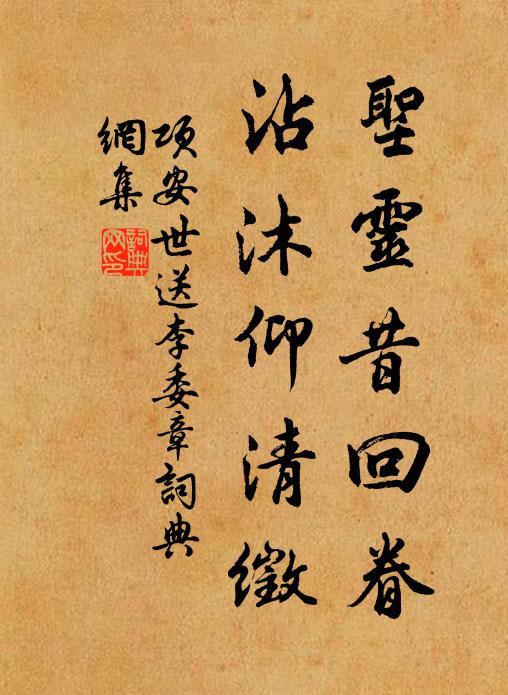 聖靈昔回眷
沾沐仰清徽
項安世送李委章詞典
網集
詞典網印